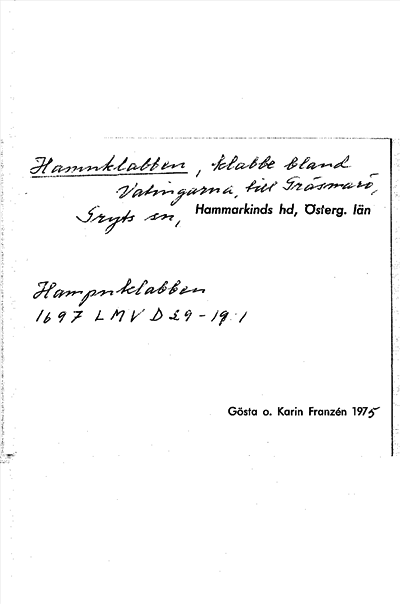 Hamnklabben, klabbe bland
Vatingarna, till Gräsmarö,
Gryts sn, Hammarkinds hd, Österg. län
Hampnklabben
1697 LMV D 29-19:1
Gösta o. Karin Franzén 1975